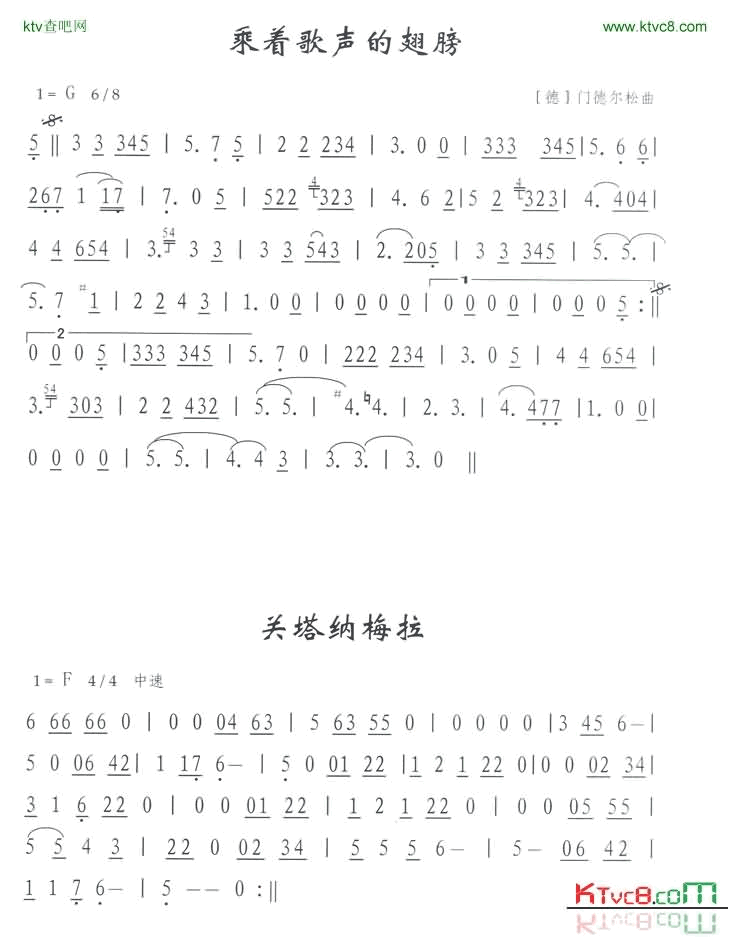 ktv查吧网
www.ktvc8.com
乘着歌声的翅膀
1= G 6/8
［德］门德尔松曲
5 || 3 3 345 | 5. 7 5 | 2 2 234 | 3. 0 0 | 333 345 | 5. 6 6 |
267 1 17 | 7. 0 5 | 522 4 323 | 4. 6 2 | 5 2 4 323 | 4. 404 |
4 4 654 | 3. 54 3 3 | 3 3 543 | 2. 205 | 3 3 345 | 5. 5. |
5. 7 #1 | 2 2 4 3 | 1. 0 0 | 0 0 0 0 | 1 0 0 0 0 | 0 0 0 5 :||
2 0 0 0 5 | 333 345 | 5. 7 0 | 222 234 | 3. 0 5 | 4 4 654 |
3. 54 303 | 2 2 432 | 5. 5. | #4. ♮4. | 2. 3. | 4. 477 | 1. 0 0 |
0 0 0 0 | 5. 5. | 4. 4 3 | 3. 3. | 3. 0 ||
关塔纳梅拉
1= F 4/4 中速
6 66 66 0 | 0 0 04 63 | 5 63 55 0 | 0 0 0 0 | 3 45 6— |
5 0 06 42 | 1 17 6— | 5 0 01 22 | 1 2 1 22 0 | 0 0 02 34 |
3 1 6 22 0 | 0 0 01 22 | 1 2 1 22 0 | 0 0 05 55 |
5 5 4 3 | 22 0 02 34 | 5 5 5 6— | 5— 06 42 |
1 1 7 6— | 5 —— 0 :||
KTvc8.com